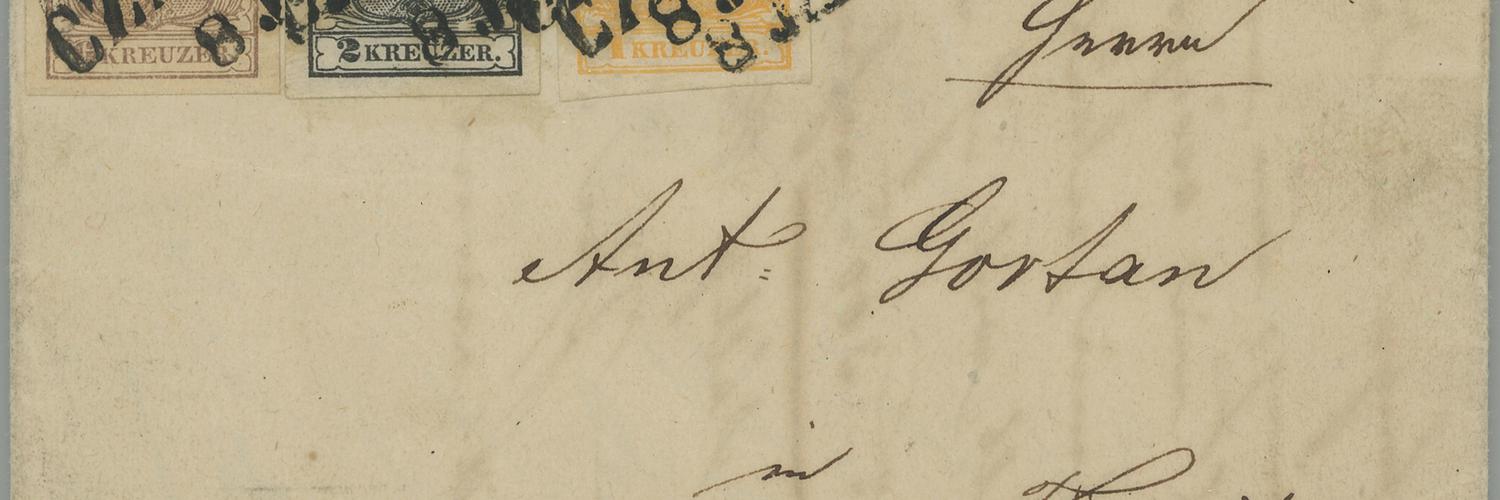 KREUZER. 2 KREUZER. 1 KREUZER.
Herrn
Ant: Gortan
in